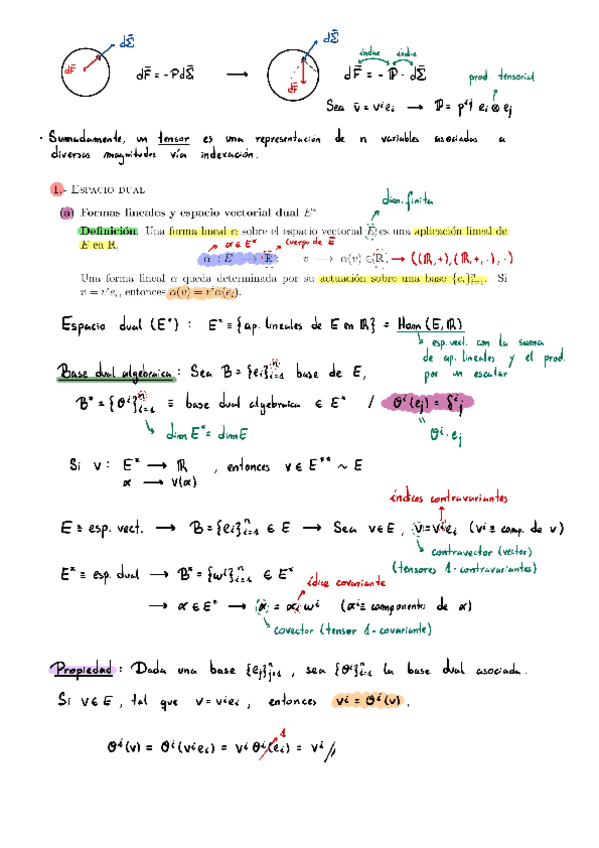 dΣ̄
dF̄
dF̄ = -PdΣ̄ ⟶
dΣ̄
dF̄
índice índice
dF̄ = - ℙ · dΣ̄
prod. tensorial
Sea v̄ = vⁱeᵢ ⟶ ℙ = pⁱʲ eᵢ⊗eⱼ
· Sumadamente, un tensor es una representación de n variables asociadas a
diversas magnitudes vía indexación.
1.- ESPACIO DUAL
dim. finita
(a) Formas lineales y espacio vectorial dual E*
Definición. Una forma lineal α sobre el espacio vectorial E es una aplicación lineal de
E en ℝ,
α∈E* cuerpo de E
α : E ⟶ ℝ : v ⟶ α(v) ∈ ℝ. → ((ℝ,+),(ℝ,+,·),·)
Una forma lineal α queda determinada por su actuación sobre una base {eᵢ}ⁿᵢ₌₁. Si
v = vⁱeᵢ, entonces α(v) = vⁱα(eᵢ).
Espacio dual (E*) : E* ≡ {ap. lineales de E en ℝ} = Hom (E,ℝ)
esp. vect. con la suma
de ap. lineales y el prod.
por un escalar
Base dual algebraica : Sea B = {eᵢ}ⁿᵢ₌₁ base de E,
B* = {θⁱ}ⁿᵢ₌₁ ≡ base dual algebraica ∈ E* / θⁱ(eⱼ) = δⁱⱼ
dim E* = dim E
"
θⁱ·eⱼ
Si v : E* ⟶ ℝ , entonces v ∈ E** ~ E
α ⟶ v(α)
índices contravariantes
E ≡ esp. vect. ⟶ B = {eᵢ}ⁿᵢ₌₁ ∈ E ⟶ Sea v∈E, v = vⁱeᵢ (vⁱ ≡ comp. de v)
contravector (vector)
(tensores 1-contravariantes)
E* ≡ esp. dual ⟶ B* = {ωⁱ}ⁿᵢ₌₁ ∈ E*
ídice covariante
⟶ α∈E* ⟶ α = αᵢ ωⁱ (αᵢ ≡ componente de α)
covector (tensor 1-covariante)
Propiedad : Dada una base {eⱼ}ⁿⱼ₌₁ , sea {θⁱ}ⁿᵢ₌₁ la base dual asociada.
Si v∈E, tal que v = vⁱeᵢ , entonces vⁱ = θⁱ(v).
1
θⁱ(v) = θⁱ(vⁱeᵢ) = vⁱ θⁱ(eᵢ) = vⁱ //